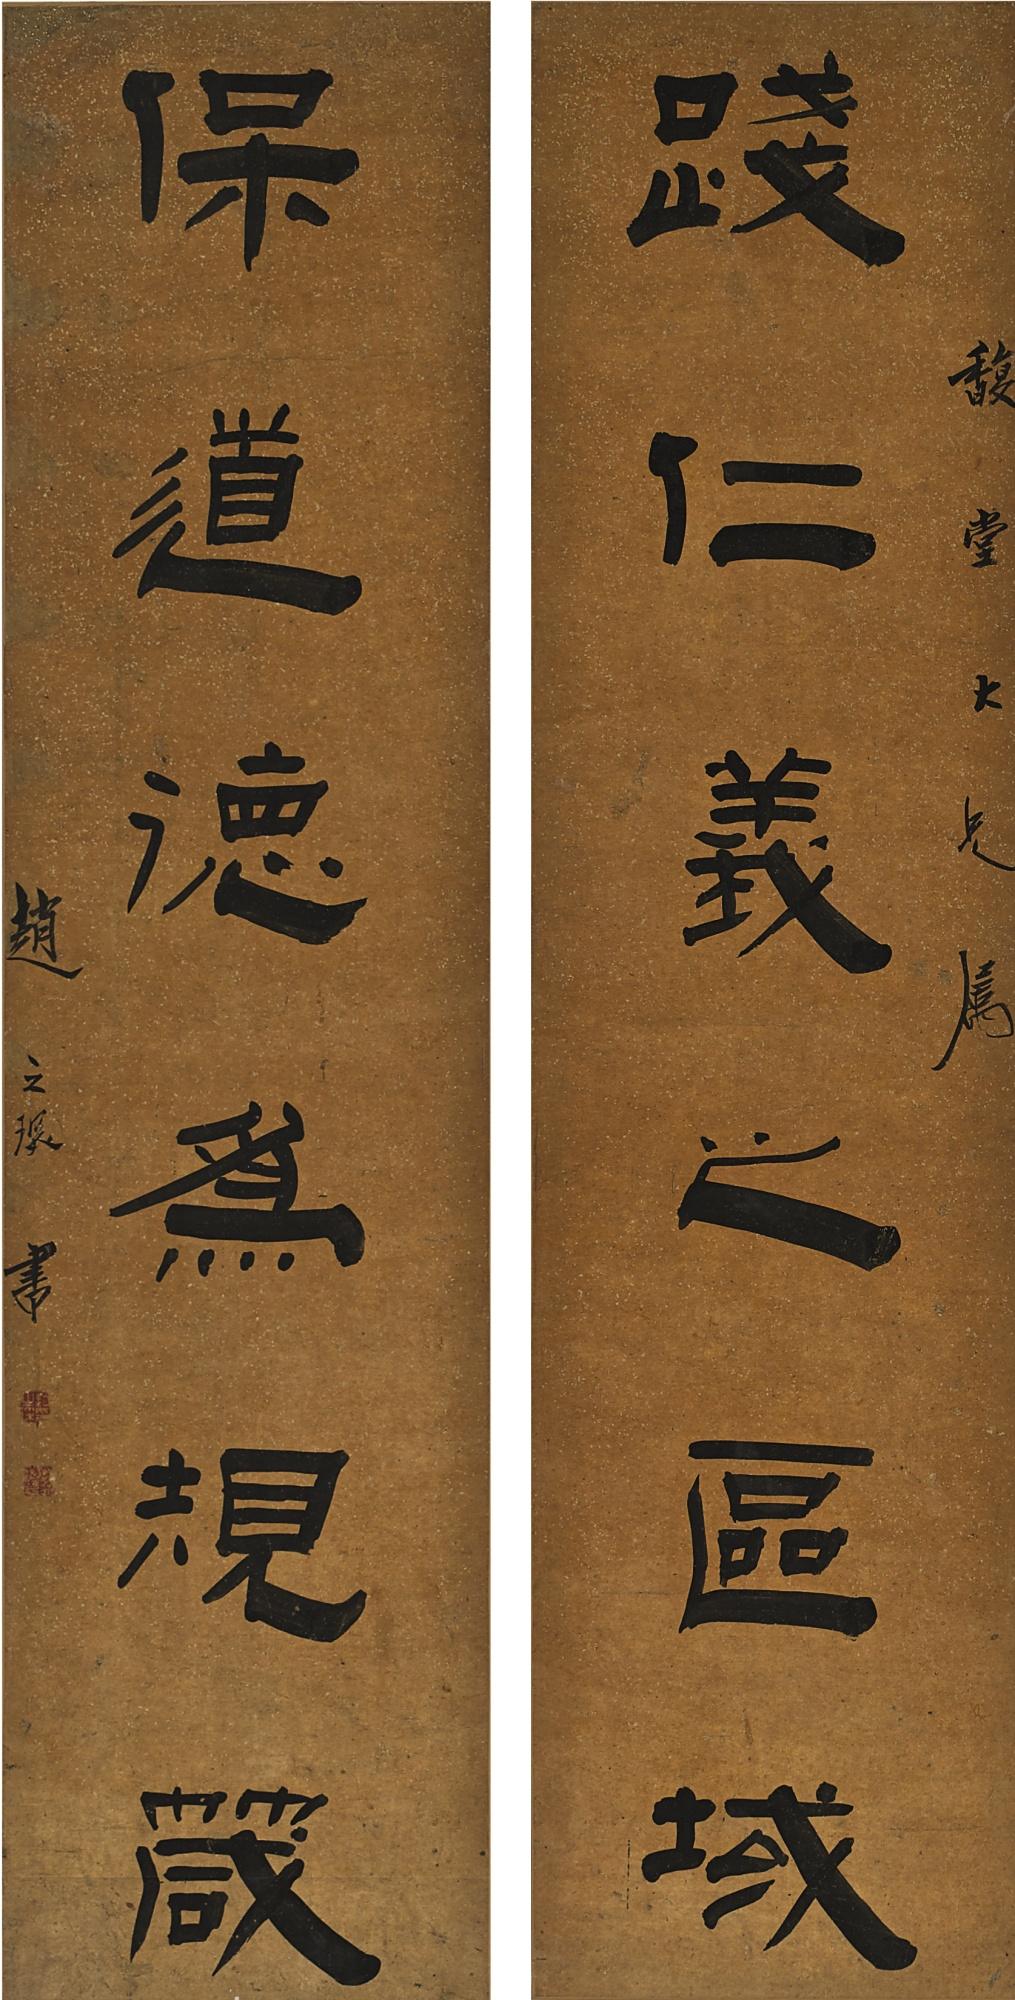 馥堂大兄属
踐仁義之區域
保道德為規箴
趙之琛書